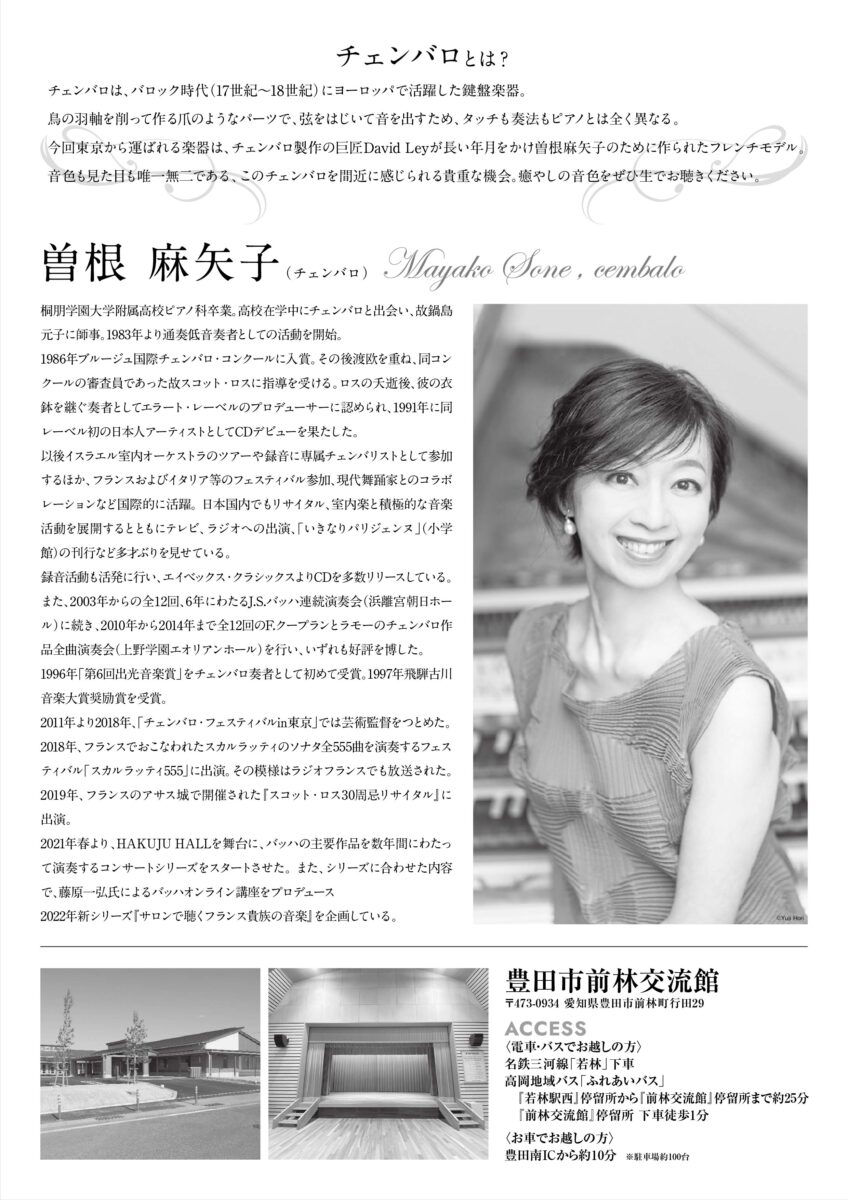 チェンバロとは?
チェンバロは、バロック時代(17世紀〜18世紀)にヨーロッパで活躍した鍵盤楽器。
鳥の羽軸を削って作る爪のようなパーツで、弦をはじいて音を出すため、タッチも奏法もピアノとは全く異なる。
今回東京から運ばれる楽器は、チェンバロ製作の巨匠David Leyが長い年月をかけ曽根麻矢子のために作られたフレンチモデル。
音色も見た目も唯一無二である、このチェンバロを間近に感じられる貴重な機会。癒やしの音色をぜひ生でお聴きください。
曽根 麻矢子(チェンバロ) Mayako Sone , cembalo
桐朋学園大学附属高校ピアノ科卒業。高校在学中にチェンバロと出会い、故鍋島
元子に師事。1983年より通奏低音奏者としての活動を開始。
1986年ブルージュ国際チェンバロ・コンクールに入賞。その後渡欧を重ね、同コン
クールの審査員であった故スコット・ロスに指導を受ける。ロスの夭逝後、彼の衣
鉢を継ぐ奏者としてエラート・レーベルのプロデューサーに認められ、1991年に同
レーベル初の日本人アーティストとしてCDデビューを果たした。
以後イスラエル室内オーケストラのツアーや録音に専属チェンバリストとして参加
するほか、フランスおよびイタリア等のフェスティバル参加、現代舞踊家とのコラボ
レーションなど国際的に活躍。 日本国内でもリサイタル、室内楽と積極的な音楽
活動を展開するとともにテレビ、ラジオへの出演、「いきなりパリジェンヌ」(小学
館)の刊行など多才ぶりを見せている。
録音活動も活発に行い、エイベックス・クラシックスよりCDを多数リリースしている。
また、2003年からの全12回、6年にわたるJ.S.バッハ連続演奏会(浜離宮朝日ホー
ル)に続き、2010年から2014年まで全12回のF.クープランとラモーのチェンバロ作
品全曲演奏会(上野学園エオリアンホール)を行い、いずれも好評を博した。
1996年「第6回出光音楽賞」をチェンバロ奏者として初めて受賞。1997年飛騨古川
音楽大賞奨励賞を受賞。
2011年より2018年、「チェンバロ・フェスティバルin東京」では芸術監督をつとめた。
2018年、フランスでおこなわれたスカルラッティのソナタ全555曲を演奏するフェス
ティバル「スカルラッティ555」に出演。その模様はラジオフランスでも放送された。
2019年、フランスのアサス城で開催された『スコット・ロス30周忌リサイタル』に
出演。
2021年春より、HAKUJU HALLを舞台に、バッハの主要作品を数年間にわたっ
て演奏するコンサートシリーズをスタートさせた。 また、シリーズに合わせた内容
で、藤原一弘氏によるバッハオンライン講座をプロデュース
2022年新シリーズ『サロンで聴くフランス貴族の音楽』を企画している。
©Yuji Hori
豊田市前林交流館
〒473-0934 愛知県豊田市前林町行田29
ACCESS
〈電車・バスでお越しの方〉
名鉄三河線「若林」下車
高岡地域バス「ふれあいバス」
『若林駅西』停留所から『前林交流館』停留所まで約25分
『前林交流館』停留所 下車徒歩1分
〈お車でお越しの方〉
豊田南ICから約10分 ※駐車場約100台